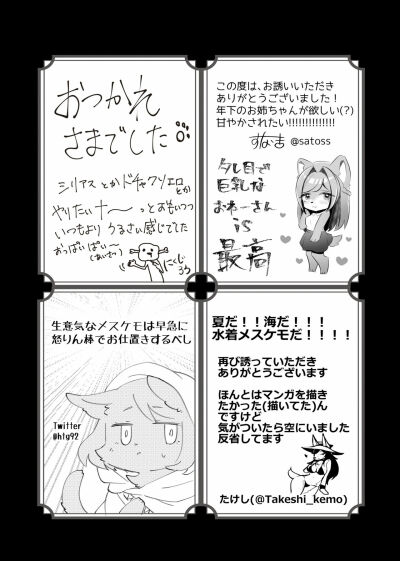 おつかれ
さまでした
シリアスとかドチャクソエロとか
やりたいナ～っとおもいつつ
いつもよりうるさい感じでした
おっぱいぱい〜
(あいさつ)
この度は、お誘いいただき
ありがとうございました！
年下のお姉ちゃんが欲しい(?)
甘やかされたい!!!!!!!!!!!!!!
@satoss
タレ目で
巨乳な
おねーさん
is
最高
生意気なメスケモは早急に
怒りん棒でお仕置きするべし
Twitter
@htg92
夏だ！！海だ！！！
水着メスケモだ！！！！
再び誘っていただき
ありがとうございます
ほんとはマンガを描き
たかった(描いてた)ん
ですけど
気がついたら空にいました
反省してます
たけし(@Takeshi_kemo)